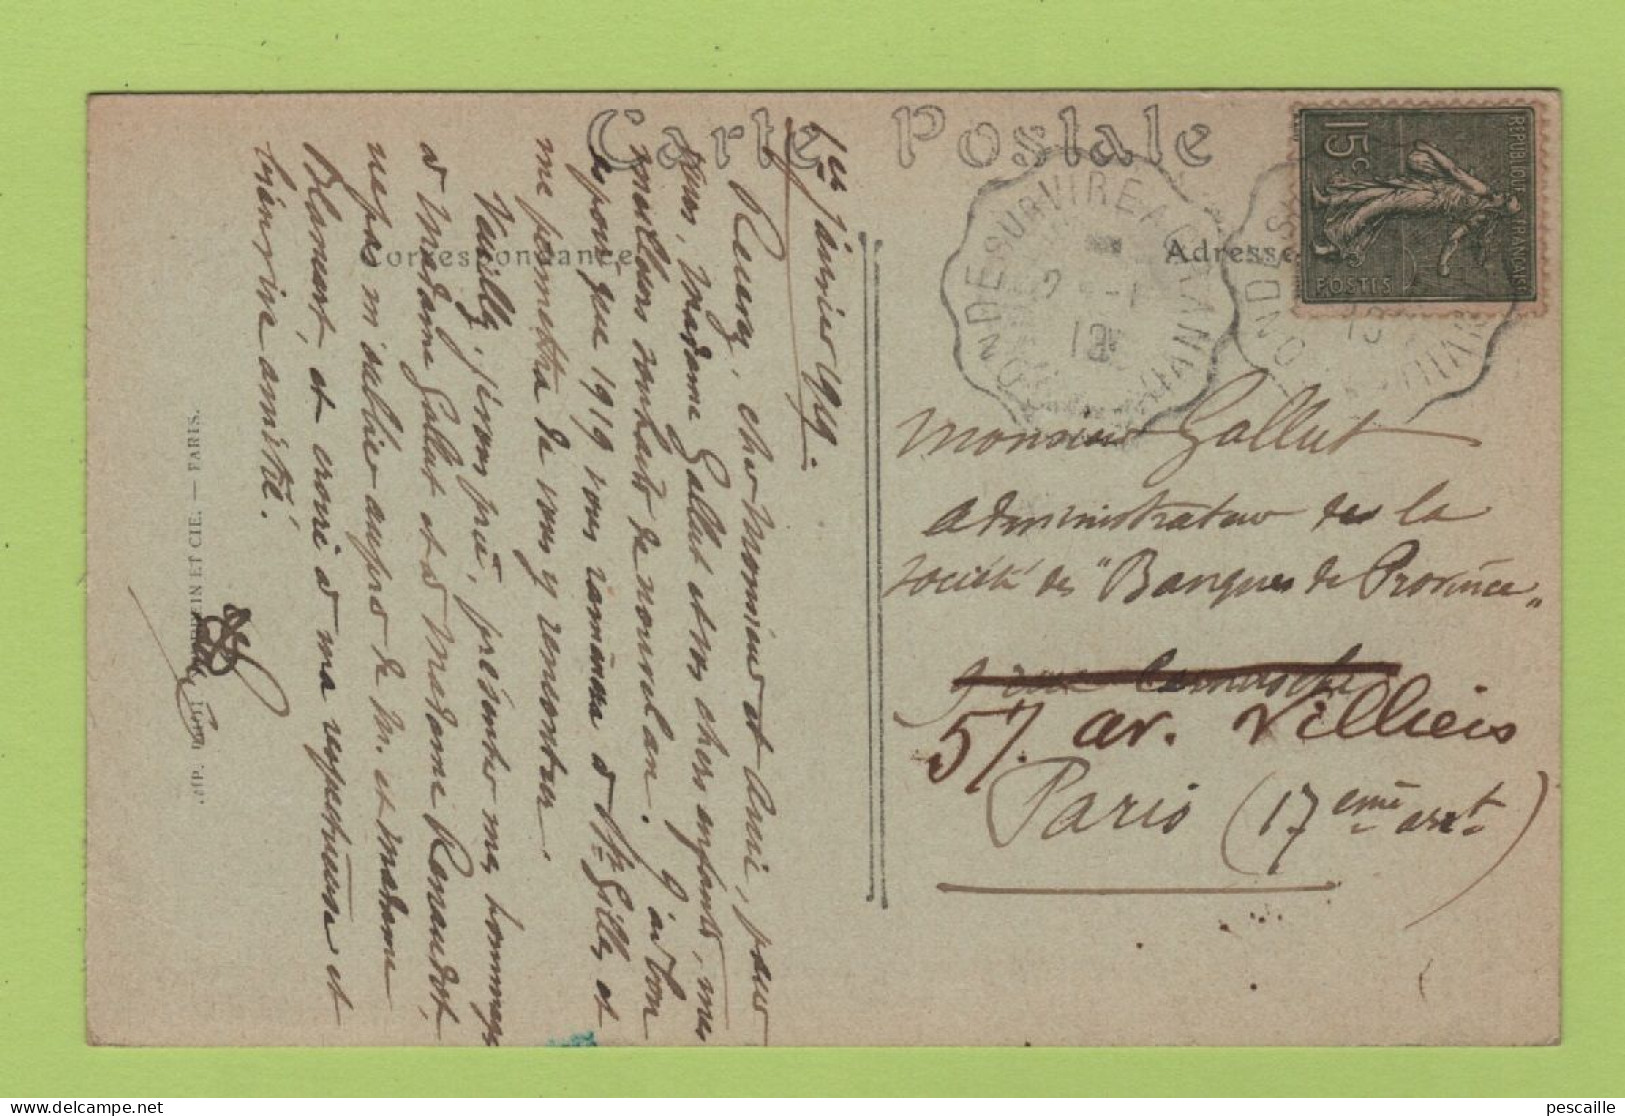 Carte Postale
Correspondance
Adresse
RÉPUBLIQUE FRANÇAISE
15c
POSTES
CONDÉ SUR VIRE A GRANVILLE
1er Janvier 1919.
Recevez, cher Monsieur et Ami, pour
vous, Madame Gallut et vos chers enfants, mes
meilleurs souhaits de nouvel an. J'ai bon
espoir que 1919 vous ramènera à St Gilles et
me permettra de vous y rencontrer.
Veuillez, je vous prie, présenter mes hommages
à Madame Gallut et à Madame Renaudot,
ne pas m'oublier auprès de M. et Madame
Blamont, et croire à ma respectueuse et
bien vive amitié.
Monsieur Gallut
Administrateur de la
Société des "Banques de Province"
57 av. Villiers
Paris (17eme arrt)
IMP. ET CIE. — PARIS.
pescaille